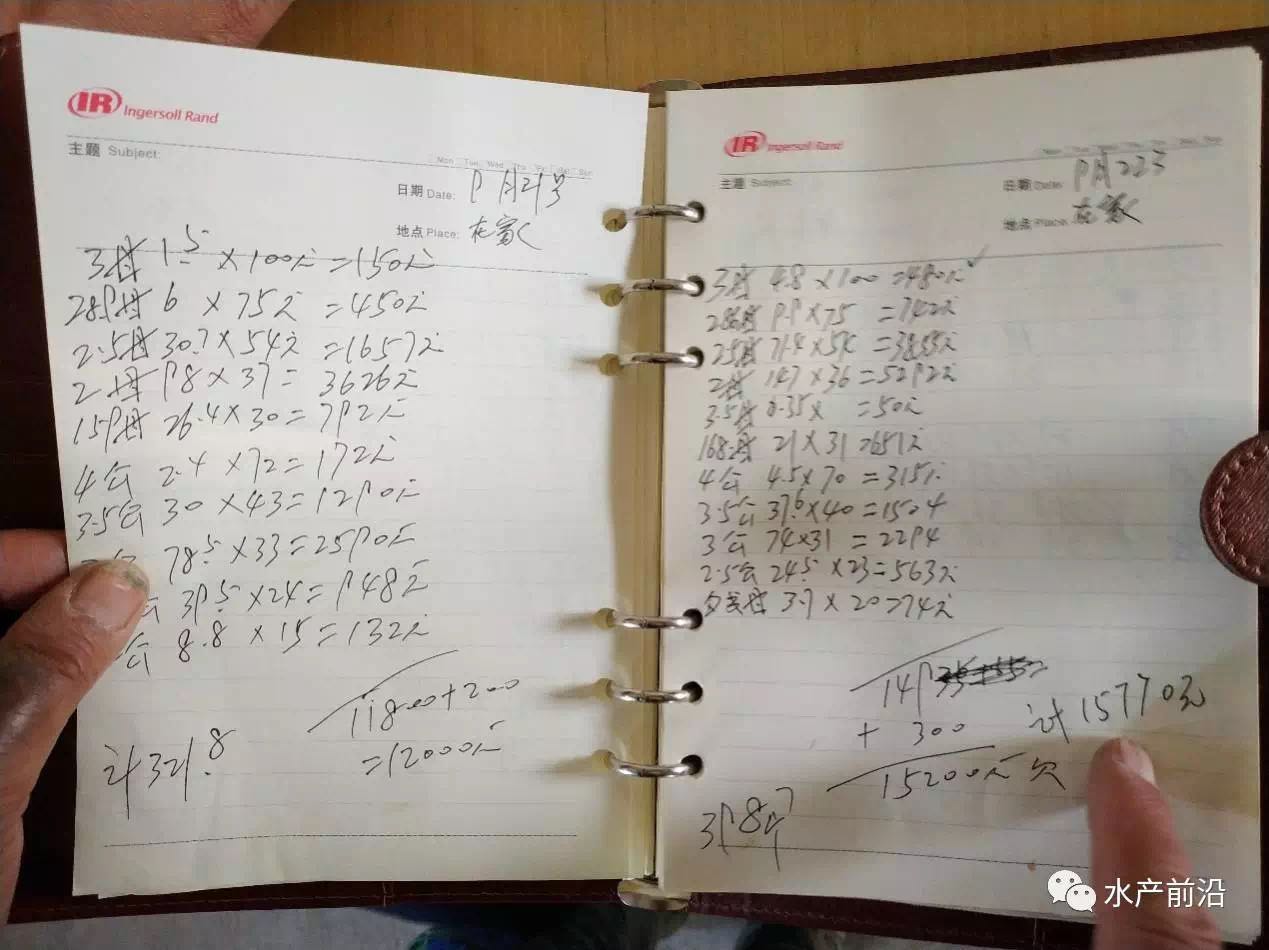 IR Ingersoll Rand
主题 Subject:
Mon Tue Wed Thu Fri Sat Sun
日期 Date: 9月21号
地点 Place:
3母 1.5 × 100元 = 150元
28P母 6 × 75元 = 450元
2.5母 30.7 × 54元 = 1657元
2母 98 × 37 = 3626元
15P母 26.4 × 30 = 792元
4公 2.4 × 72 = 172元
3.5公 30 × 43 = 1290元
公 78.5 × 33 = 2590元
公 39.5 × 24 = 948元
公 8.8 × 15 = 132元
11800+200
=12000元
计321.8
IR Ingersoll Rand
主题 Subject:
Mon Tue Wed Thu Fri Sat Sun
日期 Date: 9月22号
地点 Place:
3母 4.8 × 100 = 480元 ✓
28母 9.9 × 75 = 742元
25母 71.4 × 54 = 3855元
2母 147 × 36 = 5292元
3.5母 0.35 × = 50元
168母 21 × 31 = 651元
4公 4.5 × 70 = 315元
3.5公 37.6 × 40 = 1504
3公 74 × 31 = 2294
2.5公 24.5 × 23 = 563元
母 3.7 × 20 = 74元
149
+ 300
计15770元
15200元 欠
398.7斤
水产前沿